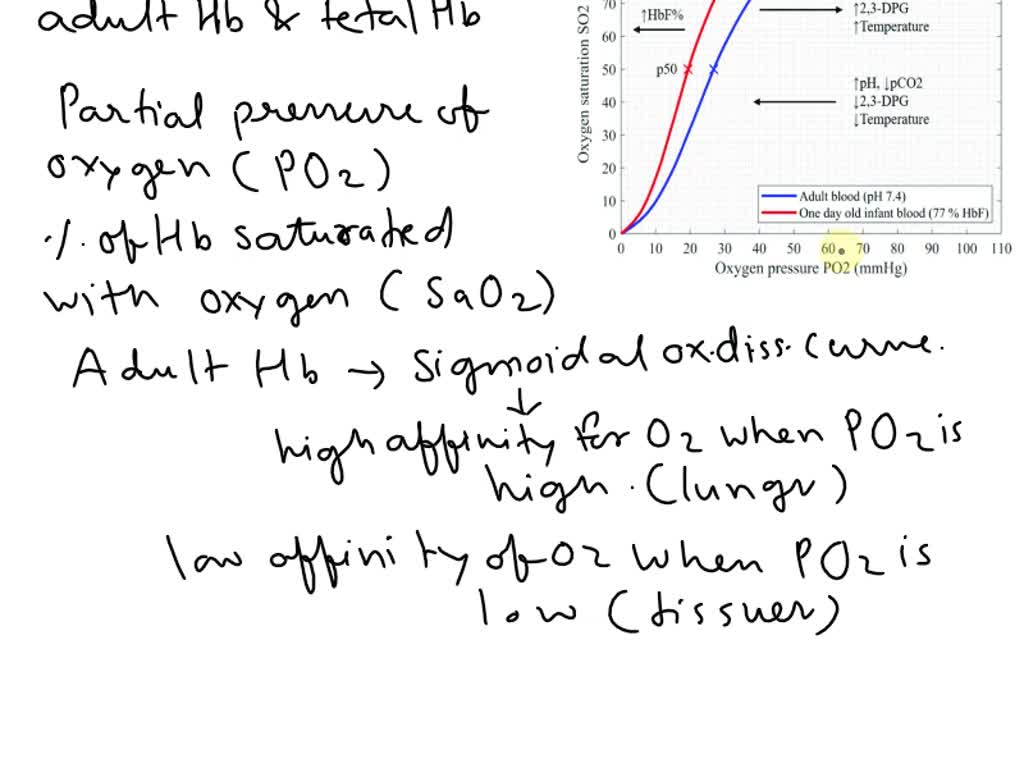 adult Hb & fetal Hb
Partial pressure of
oxygen (PO2)
% of Hb saturated
with oxygen (SaO2)
Adult Hb → Sigmoidal ox.diss. curve.
↓
high affinity for O2 when PO2 is
high. (lungs)
low affinity of O2 when PO2 is
low (tissues)
Oxygen saturation SO2
70
60
50
40
30
20
10
0
↑HbF%
p50
↑2,3-DPG
↑Temperature
↑pH, ↓pCO2
↓2,3-DPG
↓Temperature
Adult blood (pH 7.4)
One day old infant blood (77 % HbF)
0 10 20 30 40 50 60 70 80 90 100 110
Oxygen pressure PO2 (mmHg)